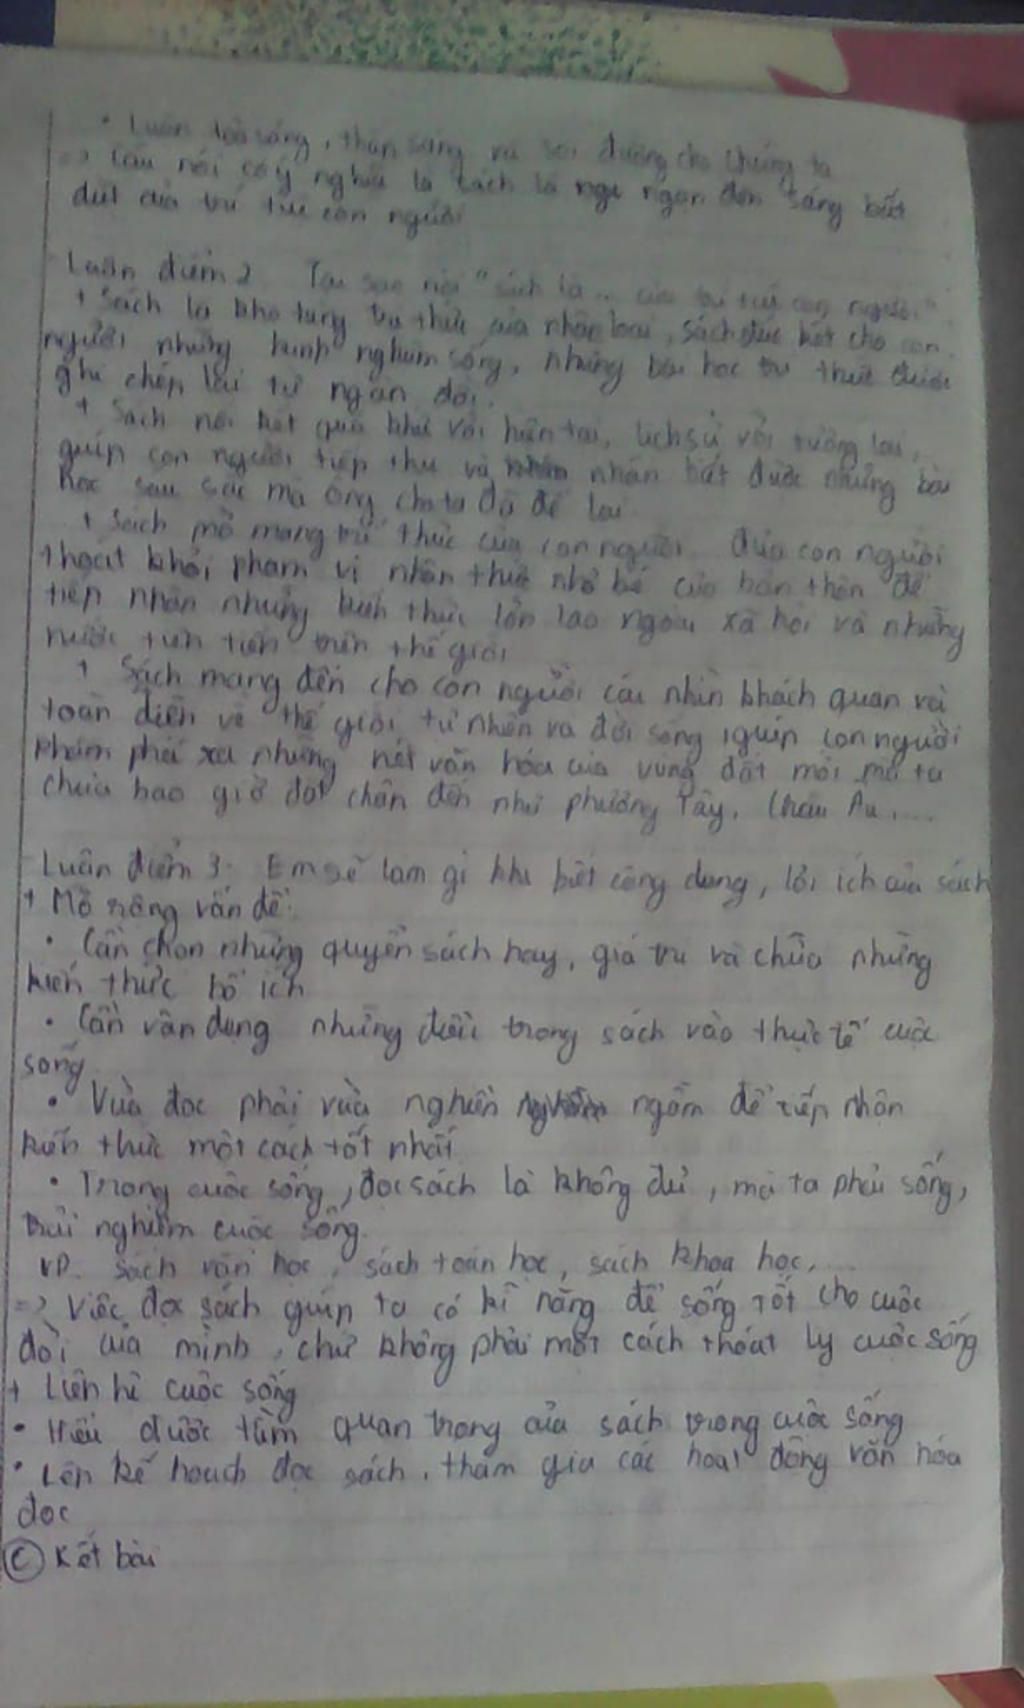 • Luôn toả sáng, thắp sáng và soi đường cho chúng ta
=> Câu nói có ý nghĩa là sách là ngọn đèn sáng bất
diệt của trí tuệ con người
Luận điểm 2 Tại sao nói "sách là ... của trí tuệ con người"
+ Sách là kho tàng tri thức của nhân loại, sách đúc kết cho con
người những kinh nghiệm sống, những bài học tri thức được
ghi chép lại từ ngàn đời.
+ Sách nối kết quá khứ với hiện tại, lịch sử với tương lai,
giúp con người tiếp thu và nhận biết được những bài
học sâu sắc mà ông cha ta đã để lại
+ Sách mở mang trí thức của con người. Đưa con người
thoát khỏi phạm vi nhận thức nhỏ bé của bản thân để
tiếp nhận những kiến thức lớn lao ngoài xã hội và những
nước tiên tiến trên thế giới
+ Sách mang đến cho con người cái nhìn khách quan và
toàn diện về thế giới tự nhiên và đời sống, giúp con người
khám phá xa những nét văn hóa của vùng đất mới mà ta
chưa bao giờ đặt chân đến như phương Tây, Châu Âu,....
Luận điểm 3: Em sẽ làm gì khi biết công dụng, lợi ích của sách
+ Mở rộng vấn đề:
• Cần chọn những quyển sách hay, giá trị và chứa những
kiến thức bổ ích
• Cần vận dụng những điều trong sách vào thực tế cuộc
sống
• Vừa đọc phải vừa nghiền ngẫm để tiếp nhận
kiến thức một cách tốt nhất
• Trong cuộc sống, đọc sách là không đủ, mà ta phải sống,
trải nghiệm cuộc sống.
VD. Sách văn học, sách toán học, sách khoa học,....
=> Việc đọc sách giúp ta có kĩ năng để sống tốt cho cuộc
đời của mình, chứ không phải một cách thoát ly cuộc sống
+ Liên hệ cuộc sống
• Hiểu được tầm quan trọng của sách trong cuộc sống
• Lên kế hoạch đọc sách, tham gia các hoạt động văn hóa
đọc
C Kết bài